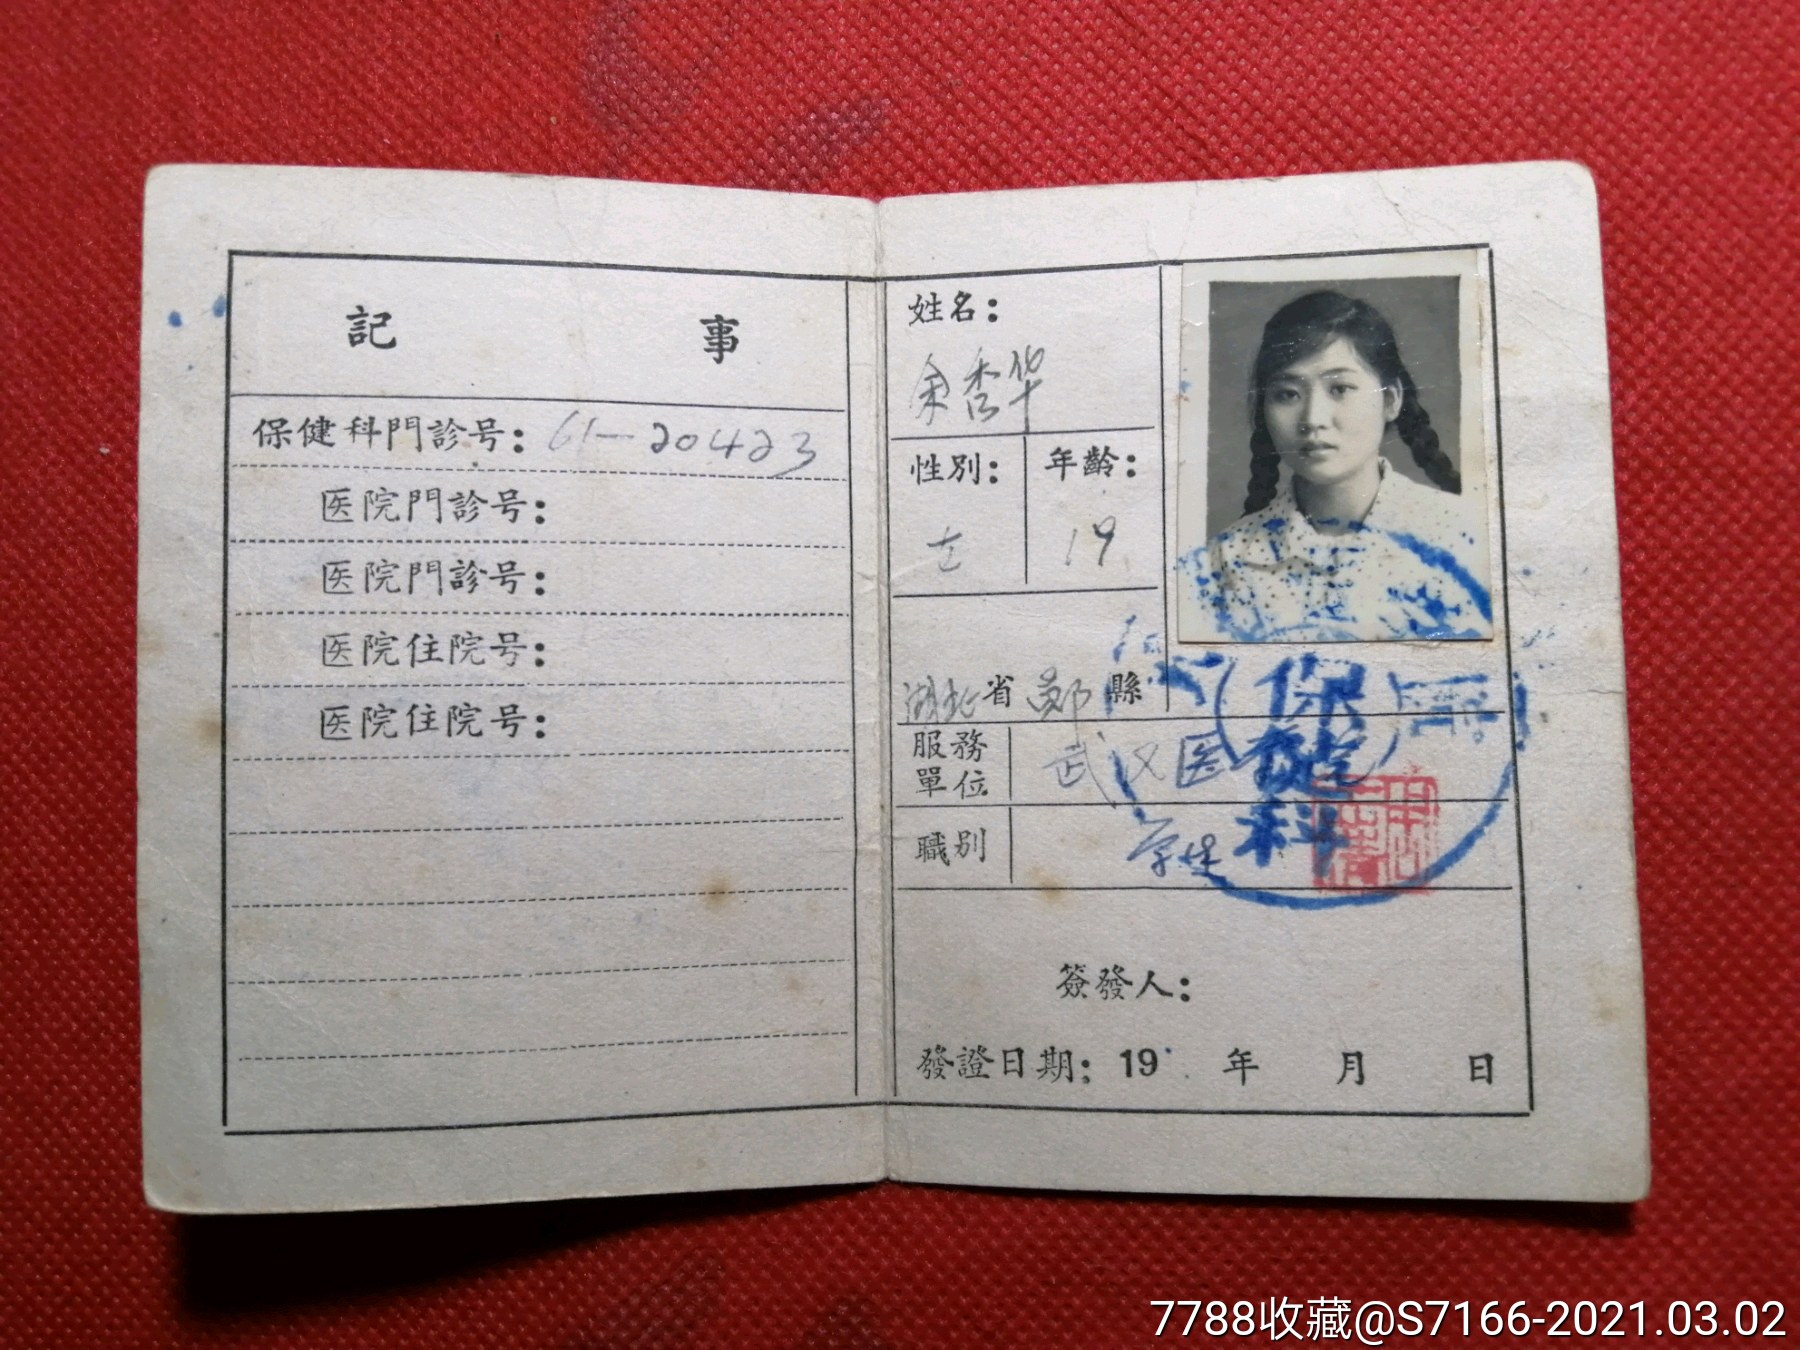 記 事
保健科門診号：61—20423
医院門診号：
医院門診号：
医院住院号：
医院住院号：
姓名：
余杏华
性别：
女
年齡：
19
湖北省鄖縣
服務單位
武汉医
職别
学生
保健科
簽發人：
發證日期：19 年 月 日
7788收藏@S7166-2021.03.02